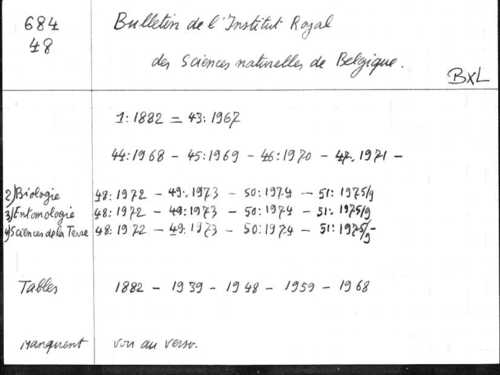 684
48
Bulletin de l'Institut Royal
des Sciences naturelles de Belgique.
BXL
1:1882 = 43:1967
44:1968 - 45:1969 - 46:1970 - 47.1971 -
2) Biologie 48:1972 - 49:1973 - 50:1974 - 51:1975/9
3) Entomologie 48:1972 - 49:1973 - 50:1974 - 51:1975/9
4) Sciences de la Terre 48:1972 - 49:1973 - 50:1974 - 51:1975/9-
Tables 1882 - 1939 - 1948 - 1959 - 1968
Manquent voir au verso.